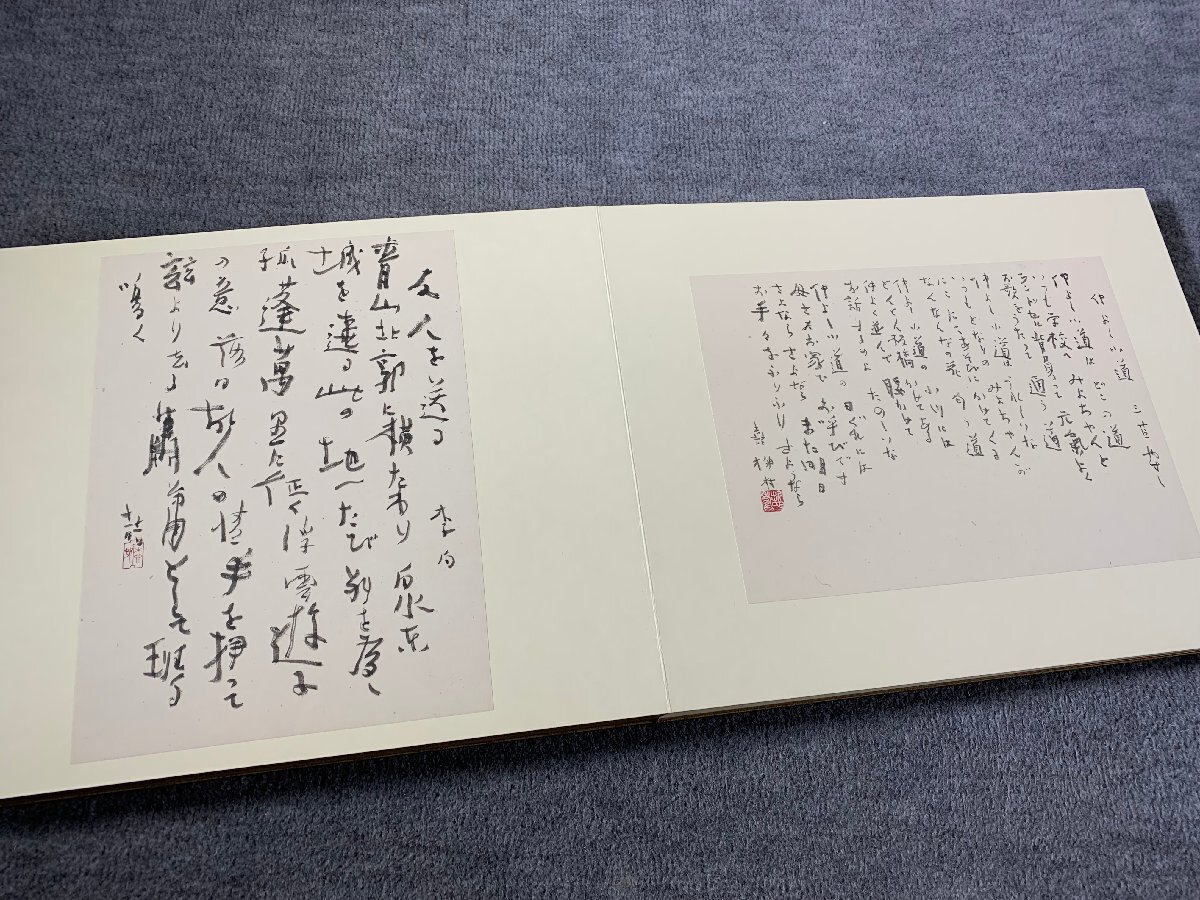 仲よし小道 三苫やすし
仲よし小道は どこの道
いつも学校へ みよちゃんと
ランドセル背負って 元氣よく
お歌をうたって 通う道
仲よし小道は うれしいな
いつもとなりの みよちゃんが
にこにこあそびに かけてくる
なんなんなの花 匂う道
仲よし小道の 小川には
とんとん板橋 かけてある
仲よく並んで 腰かけて
お話するのよ たのしいな
仲よし小道の 日ぐれには
母さまお家で お呼びです
さよならさよなら また明日
お手々をふりふり さようなら
友人を送る 李白
青山北郭に横たわり 白水東
城を遶る 此の地一たび別を為し
孤蓬萬里に征く 浮雲遊子
の意 落日故人の情 手を揮って
茲より去る 蕭蕭として班馬
鳴く